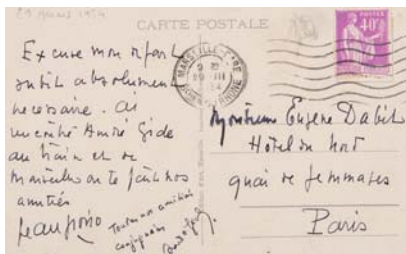 29 mars 1934
CARTE POSTALE
40c
POSTES
MARSEILLE-GARE
29 III
34
BCHES DU RHONE
Excuse mon
absolument
necessaire. Ai
rencontré André Gide
au train et de
Marseille on te fait nos
amitiés
Jean Giono
Toutes nos amitiés
conjuguées
André Gide
Monsieur Eugene Dabit
Hôtel du Nort
quai de Jemmapes
Paris